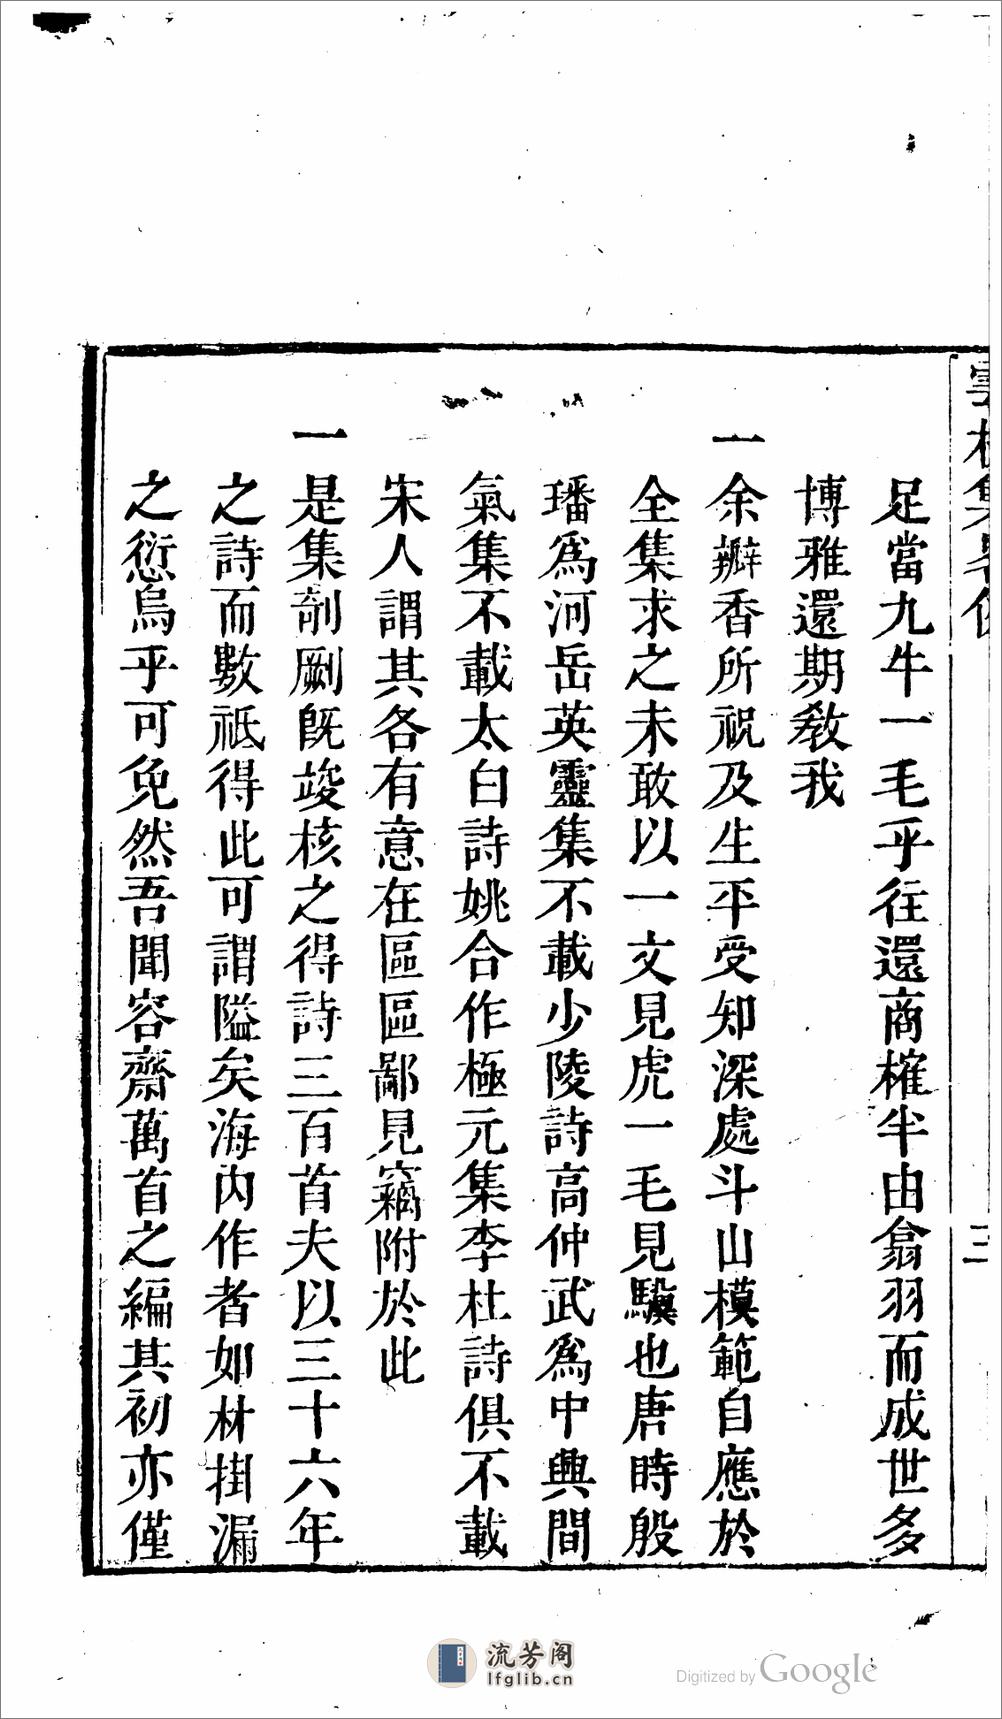 足當九牛一毛乎往還商榷半由翕羽而成世多
博雅還期教我
一余瓣香所祝及生平受知深處斗山模範自應於
全集求之未敢以一文見虎一毛見驥也唐時殷
璠爲河岳英靈集不載少陵詩高仲武爲中興間
氣集不載太白詩姚合作極元集李杜詩俱不載
宋人謂其各有意在區區鄙見竊附於此
一是集剞劂旣竣核之得詩三百首夫以三十六年
之詩而數祗得此可謂隘矣海內作者如林掛漏
之愆烏乎可免然吾聞容齋萬首之編其初亦僅
三
流芳阁
lfglib.cn
Digitized by Google